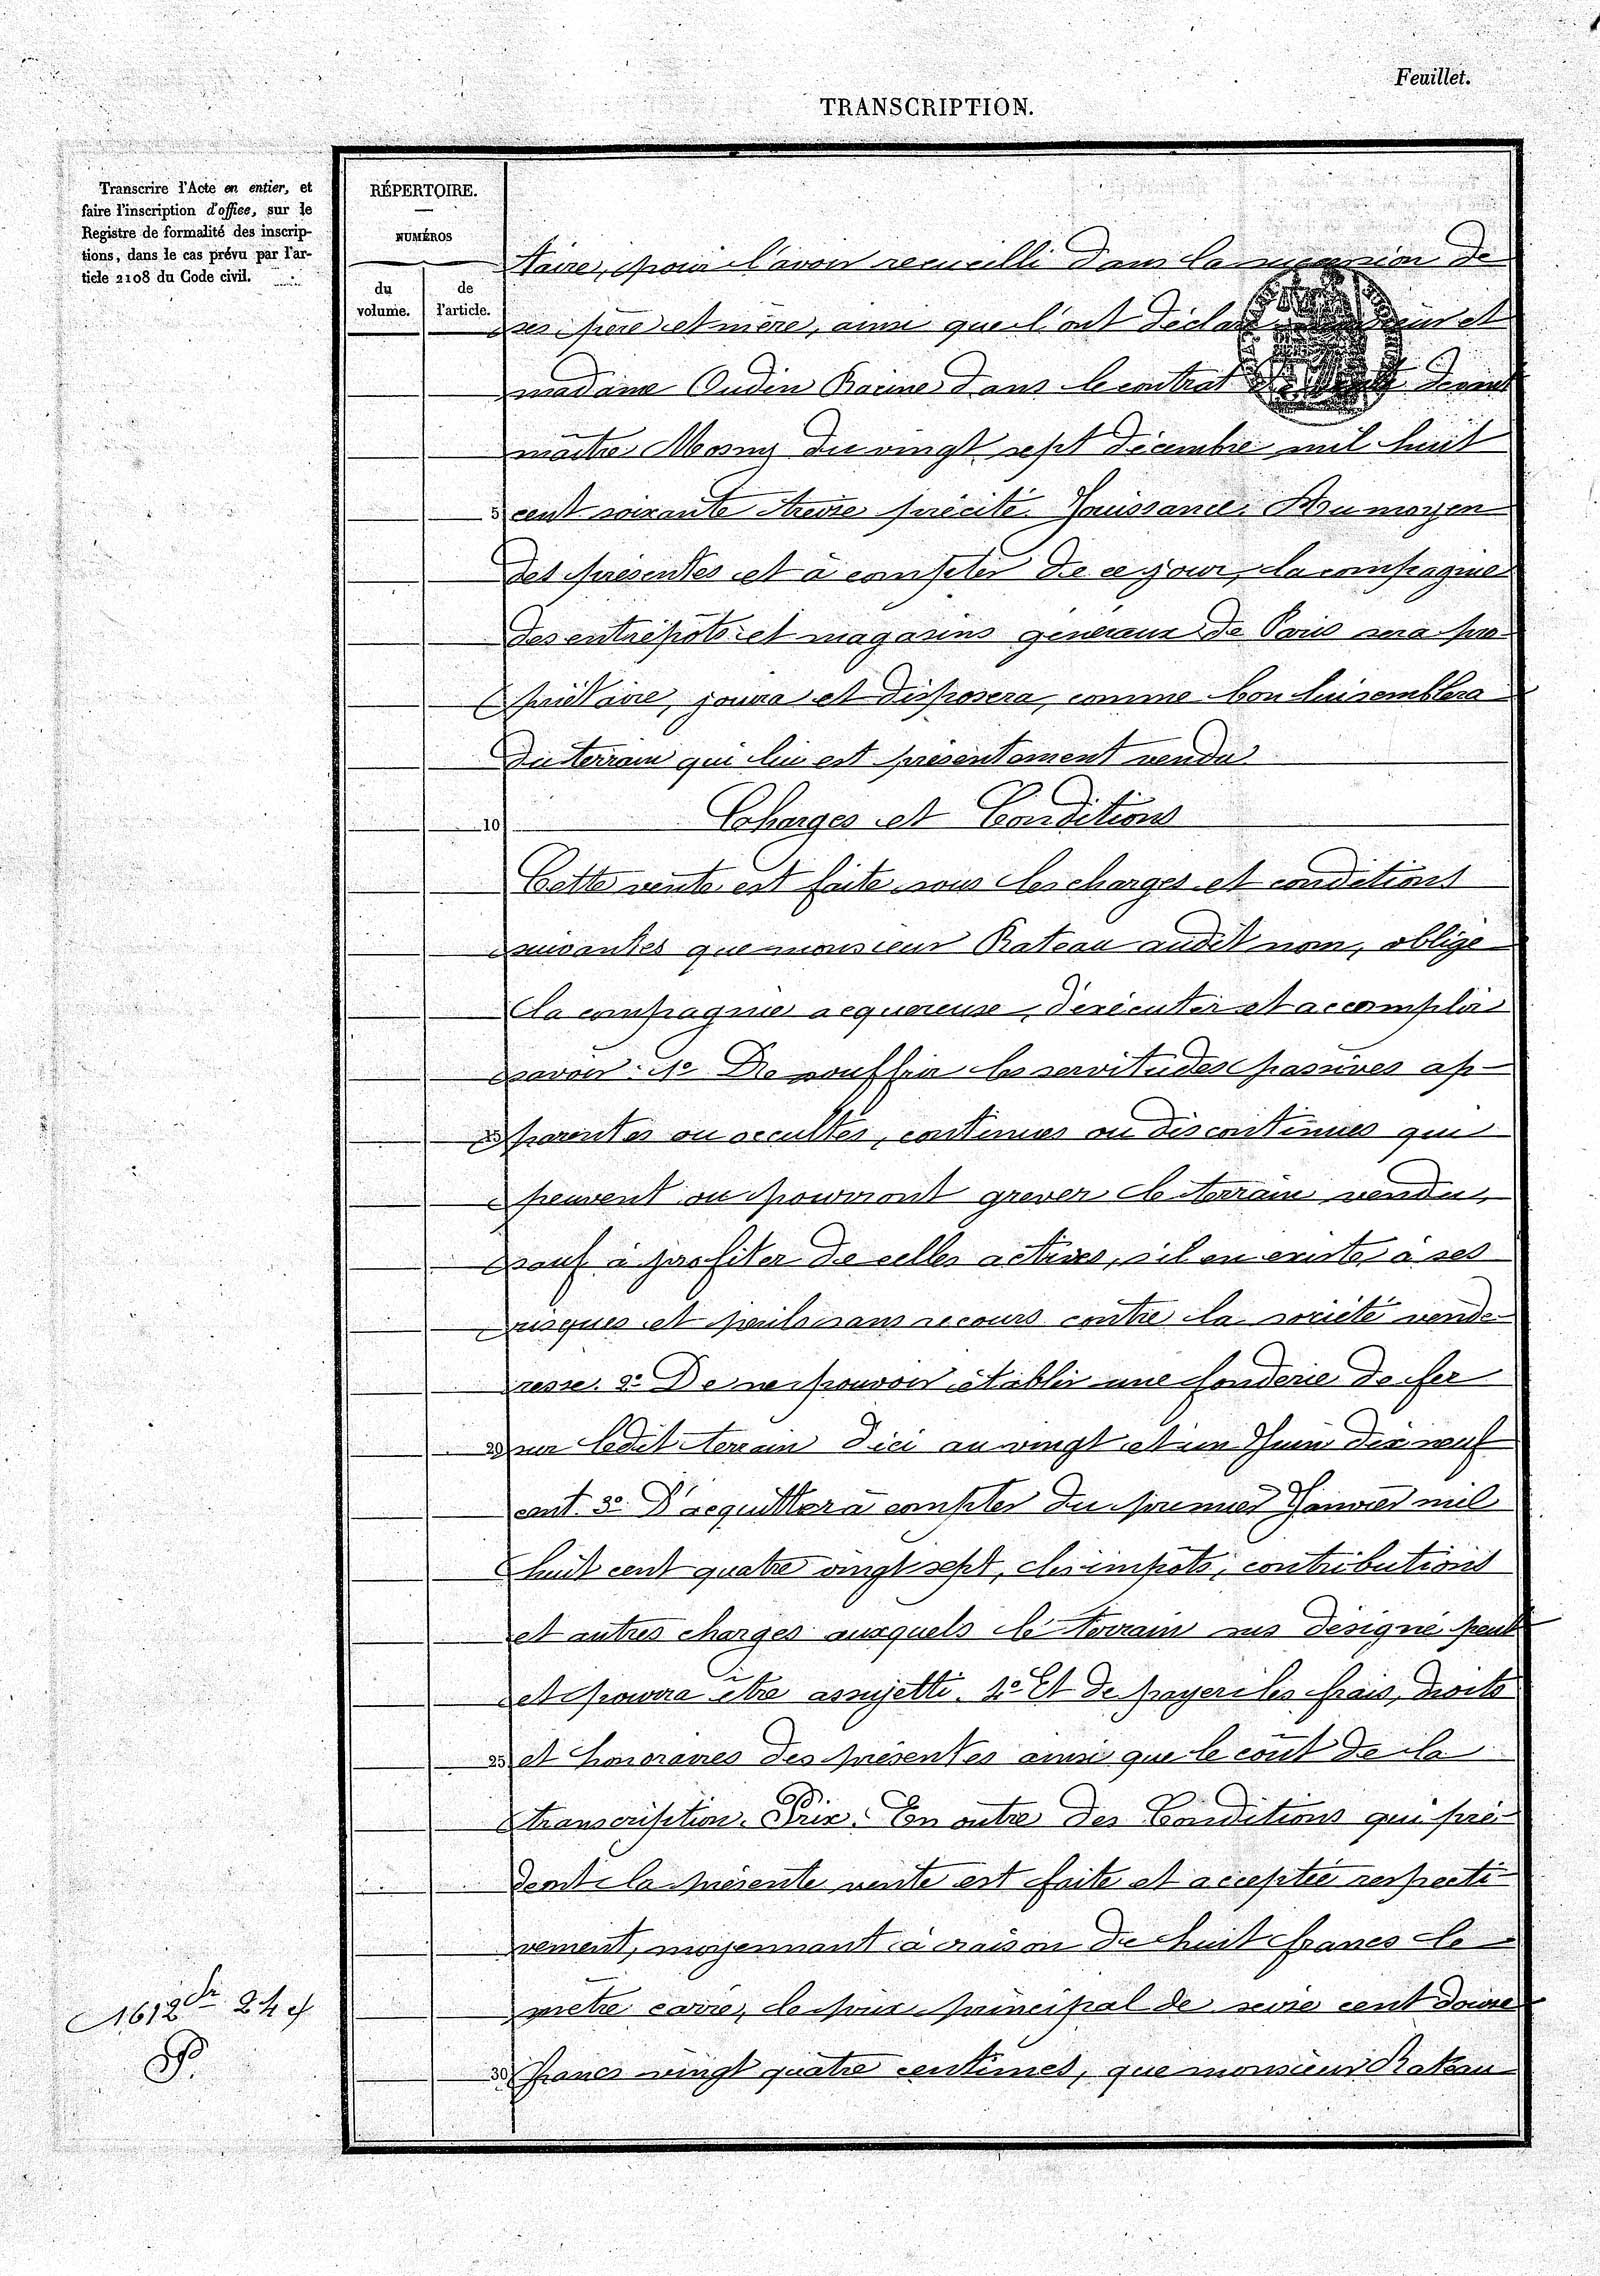 Feuillet.
TRANSCRIPTION.
Transcrire l'Acte en entier, et
faire l'inscription d'office, sur le
Registre de formalité des inscrip-
tions, dans le cas prévu par l'ar-
ticle 2108 du Code civil.
RÉPERTOIRE.
NUMÉROS
du volume.
de l'article.
taire, pour l'avoir recueilli dans la succession de
ses père et mère, ainsi que l'ont déclaré et
madame Oudin Racine dans le contrat devant
maître Mosny du vingt sept décembre mil huit
5 cent soixante treize précité. Jouissance. Au moyen
des présentes et à compter de ce jour, la compagnie
des entrepôts et magasins généraux de Paris sera pro
priétaire, jouira et disposera, comme bon lui semblera
du terrain qui lui est présentement vendu
10 Charges et Conditions
Cette vente est faite sous les charges et conditions
suivantes que monsieur Rateau audit nom, oblige
la compagnie acquereuse, d'exécuter et accomplir
savoir: 1º De souffrir les servitudes passives ap-
15 parentes ou occultes, continues ou discontinues qui
peuvent ou pourront grever le terrain vendu,
sauf à profiter de celles actives, s'il en existe, à ses
risques et périls sans recours contre la société vende-
resse. 2º De ne pouvoir établir une fonderie de fer
20 sur ledit terrain d'ici au vingt et un Juin dix neuf
cent. 3º D'acquitter à compter du premier Janvier mil
huit cent quatre vingt sept, les impôts, contributions
et autres charges auxquels le terrain sus désigné peut
et pourra être assujetti. 4º Et de payer les frais, droits
25 et honoraires des présentes ainsi que le coût de la
transcription. Prix. En outre des Conditions qui pré-
dent la présente vente est faite et acceptée respecti-
vement, moyennant à raison de huit francs le
mètre carré, le prix principal de seize cent douze
30 francs vingt quatre centimes, que monsieur Rateau
1612 fr 24 c